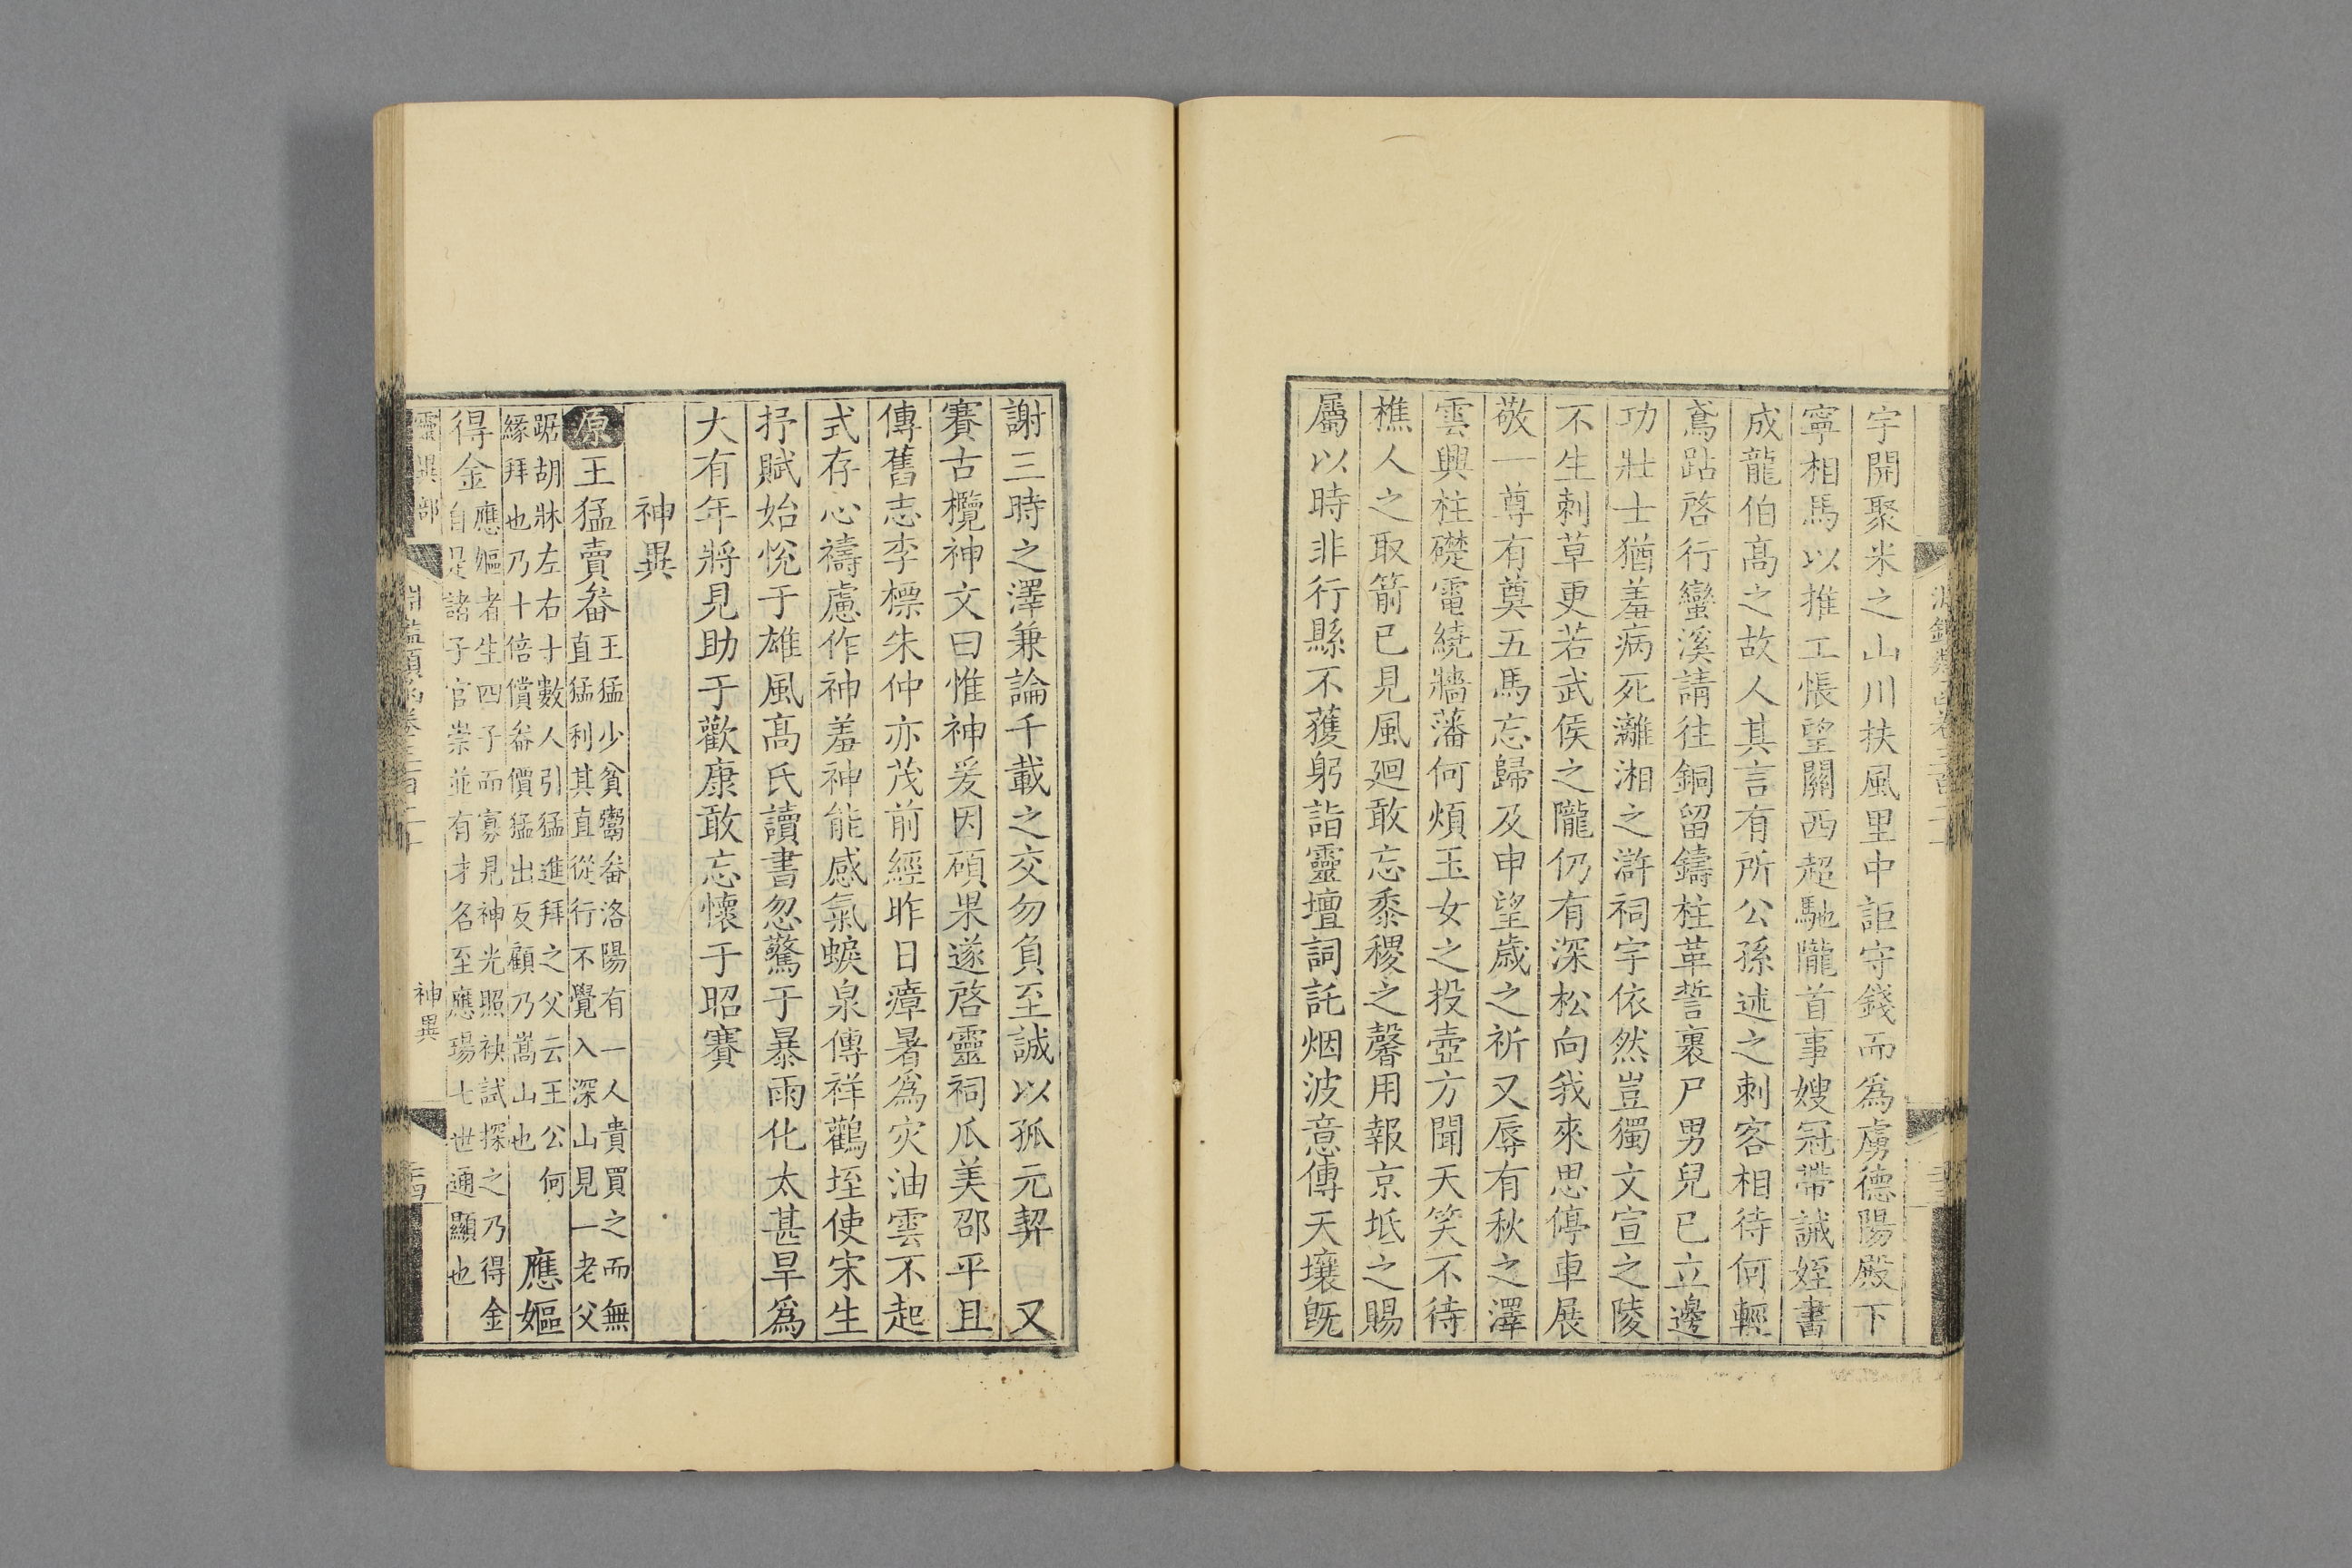 宇開聚米之山川扶風里中詎守錢而爲虜德陽殿下
寧相馬以推工悵望關西超馳隴首事嫂冠帶誡姪書
成龍伯高之故人其言有所公孫述之刺客相待何輕
鳶跕啓行蠻溪請往銅留鑄柱革誓裹尸男兒已立邊
功壯士猶羞病死灕湘之滸祠宇依然豈獨文宣之陵
不生刺草更若武侯之隴仍有深松向我來思停車展
敬一尊有奠五馬忘歸及申望歲之祈又辱有秋之澤
雲興柱礎電繞牆藩何煩玉女之投壺方聞天笑不待
樵人之取箭已見風廻敢忘黍稷之馨用報京坻之賜
屬以時非行縣不獲躬詣靈壇詞託烟波意傳天壤旣
謝三時之澤兼論千載之交勿負至誠以孤元契 又
賽古欖神文曰惟神爰因碩果遂啓靈祠瓜美邵平且
傳舊志李標朱仲亦茂前經昨日瘴暑爲灾油雲不起
式存心禱慮作神羞神能感氣蜧泉傳祥鸛垤使宋生
抒賦始悅于雄風高氏讀書忽驚于暴雨化太甚旱爲
大有年將見助于歡康敢忘懷于昭賽
神異
原王猛賣畚王猛少貧鬻畚洛陽有一人貴買之而無
直猛利其直從行不覺入深山見一老父
踞胡牀左右十數人引猛進拜之父云王公何
緣拜也乃十倍償畚價猛出反顧乃嵩山也 應嫗
得金應嫗者生四子而寡見神光照袂試探之乃得金
自是諸子官崇並有才名至應瑒七世通顯也
靈異部 淵鑑類函卷三百二十 神異